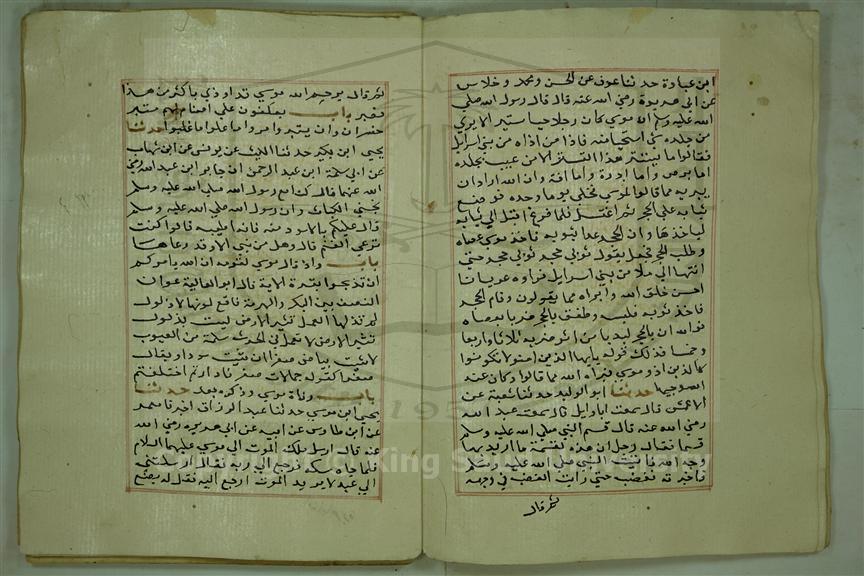 ابن عبادة حدثنا عوف عن الحسن ومحمد وخلاس
عن ابي هريرة رضي الله عنه قال قال رسول الله صلي
الله عليه وسلم ان موسي كان رجلا حييا ستير الا يري
من جلده شي استحيا منه فاذاه من اذاه من بني اسرايل
فقالوا ما يستتر هذا التستر الا من عيب بجلده
اما برص واما ادرة واما افة وان الله اراد ان
يبريه مما قالوا لموسي فخلي يوما وحده فوضع
ثيابه علي الحجر ثم اغتسل فلما فرغ اقبل الي ثيابه
لياخذها وان الحجر عدا بثوبه فاخذ موسي عصاه
وطلب الحجر فجعل يقول ثوبي حجر ثوبي حجر حتي
انتهي الي ملا من بني اسرايل فراوه عريانا
احسن خلق الله وابراه مما يقولون وقام الحجر
فاخذ ثوبه فلبسه وطفق بالحجر ضربا بعصاه
فوالله ان بالحجر لندبا من اثر ضربه ثلاثا واربعا
وخمسا فذلك قوله يايها الذين امنوا لا تكونوا
كالذين اذو موسي فبراه الله مما قالوا وكان عند
الله وجيها حدثنا ابو الوليد حدثنا شعبة عن
الاعمش قال سمعت ابا وايل قال سمعت عبد الله
رضي الله عنه قال قسم النبي صلي الله عليه وسلم
قسما فقال رجل ان هذه لقسمة ما اريد بها
وجه الله فاتيت النبي صلي الله عليه وسلم
فاخبرته فغضب حتي رايت الغضب في وجهه
ثم قال
ثم قال يرحم الله موسي قد اوذي باكثر من هذا
فصبر باب يعكفون علي اصنام لهم متبر
خسران وان يتبروا يدمروا ما علوا ما غلبوا حدثنا
يحيي ابن بكير حدثنا الليث عن يونس عن ابن شهاب
عن ابي سلمة ابن عبد الرحمن ان جابر ابن عبد الله رضي
الله عنهما قال كنا مع رسول الله صلي الله عليه وسلم
نجني الكباث وان رسول الله صلي الله عليه وسلم
قال عليكم بالاسود منه فانه اطيبه قالوا كنت
ترعي الغنم قال وهل من نبي الا وقد رعاها
باب واذ قال موسي لقومه ان الله يامركم
ان تذبحوا بقرة الاية قال ابو العالية عوان
النصف بين البكر والهرمة فاقع لونها لا ذلول
لم تذلها العمل تثير الارض ليست بذلول
تثير الارض ولا تعمل في الحرث مسلمة من العيوب
لا شية بياض صفرا ان شئت سودا ويقال
صفرا كقوله جمالات صفر فادارتم اختلفتم
باب وفاة موسي وذكره بعد حدثنا
يحيي ابن موسي حدثنا عبد الرزاق اخبرنا معمر
عن ابن طاوس عن ابيه عن ابي هريرة رضي الله
عنه قال ارسل ملك الموت الي موسي عليهما السلام
فلما جاه صكه فرجع الي ربه فقال ارسلتني
الي عبد لا يريد الموت ارجع اليه فقل له يضع
King Saud University
195